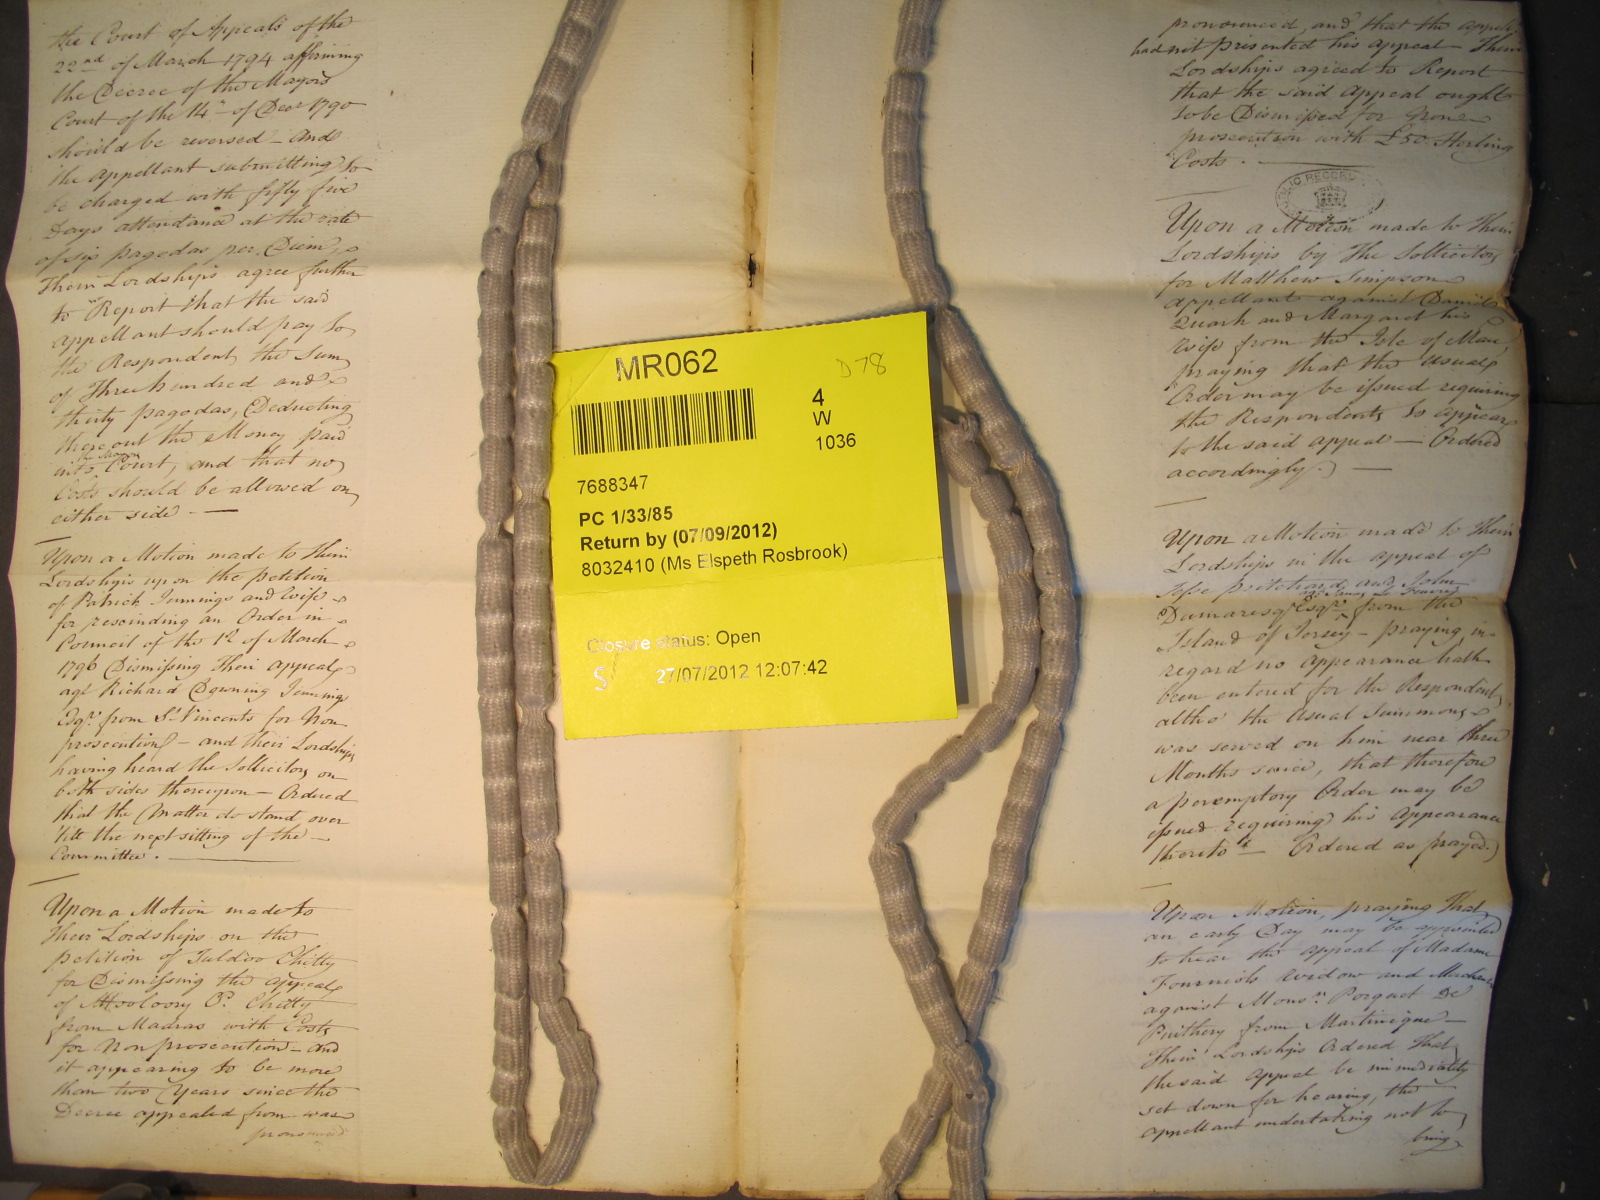 the Court of Appeals of the
22nd of March 1794 affirming
the Decree of the Mayors
Court of the 14th of Decr 1790
should be reversed - and
the appellant submitting to
be charged with fifty five
Days attendance at the rate
of six pagodas per Diem,
Their Lordships agree further
to Report that the said
appellant should pay to
the Respondent, the Sum
of Three hundred and
thirty pagodas, Deducting
thereout the Money paid
into the Mayors Court, and that no
Costs should be allowed on
either side. —
Upon a Motion made to Their
Lordships upon the petition
of Patrick Jennings and Wife
for rescinding an Order in
Council of the 1st of March
1796 Dismissing Their appeal
agt Richard Downing Jennings
Esqr. from St Vincents for Non
prosecution - and their Lordships
having heard the Sollicitors on
both sides thereupon - Ordered
that the Matter do stand over
'till the next sitting of the
Committee. —
Upon a Motion made to
Their Lordships on the
petition of Chitty
for Dismissing the appeal
of Chitty
from Madras with Costs
for Non prosecution - and
it appearing to be more
than two Years since the
Decree appealed from was
pronounced
pronounced, and that the appellt
had not presented his appeal - Their
Lordships agreed to Report
that the said Appeal ought
to be Dismissed for None
prosecution with £50 Sterling
Costs. —
PUBLIC RECORD
Upon a Motion made to Their
Lordships by The Sollicitor
for Matthew Simpson
appellant against Daniel
Quark and Margaret his
Wife from the Isle of Man,
praying that the usual
Order may be issued requiring
the Respondents to appear
to the said appeal — Ordered
accordingly. —
Upon a Motion made to Their
Lordships in the appeal of
and John
Dumaresq Esqr. from the
Island of Jersey - praying, in
regard no Appearance hath
been entered for the Respondent,
altho' the Usual Summons
was served on him near three
Months since, that therefore
a peremptory Order may be
issued requiring his Appearance
thereto — Ordered as prayed.
Upon Motion, praying That
an early Day may be appointed
to hear the appeal of Madame
Fourniols Widow and
against Monsr. Porquet De
from Martinique -
Their Lordships Ordered that
the said Appeal be immediately
set down for hearing, the
appellant undertaking not to
bring
MR062
D78
4
W
1036
7688347
PC 1/33/85
Return by (07/09/2012)
8032410 (Ms Elspeth Rosbrook)
Closure status: Open
S
27/07/2012 12:07:42